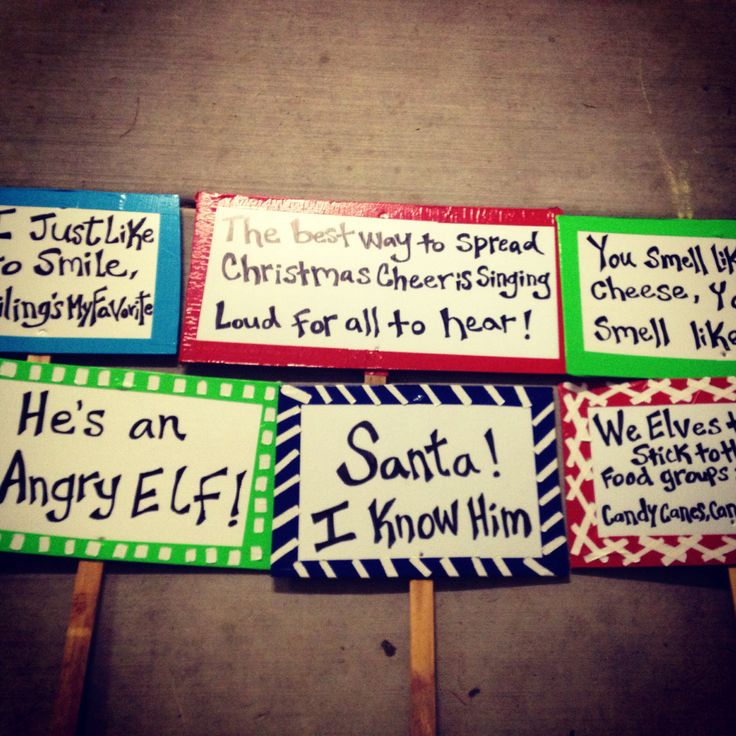 I Just Like
to Smile,
iling's My Favorite
The best way to spread
Christmas Cheer is Singing
Loud for all to hear!
You smell lik
Cheese, Yo
smell like
He's an
Angry Elf!
Santa!
I Know Him
We Elves t
Stick to th
Food groups
Candy Canes, Can